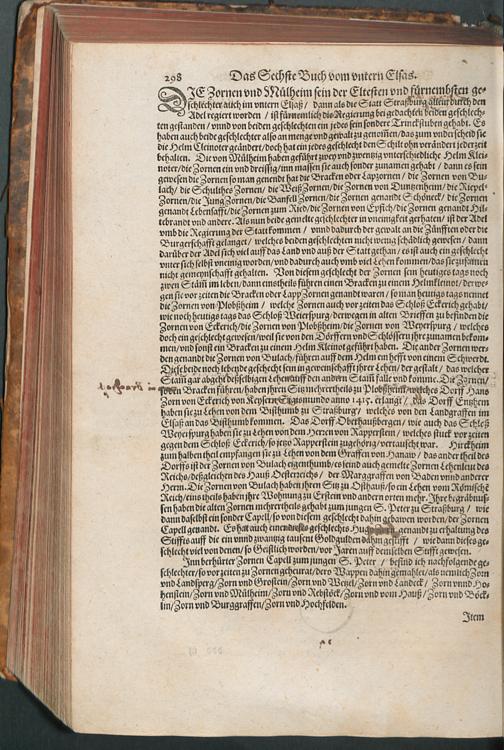 298 Das Sechste Buch vom vntern Elsas.
DIE Zornen vnd Mülheim sein der Eltesten vnd fürnembsten ge-
schlechter auch im vntern Elsaß / dann als die Statt Straßburg allein durch den
Adel regiert worden / ist fürnemlich die Regierung bei gedachten beiden geschlech-
ten gestanden / vnnd von beiden geschlechten ein jedes sein sondere Trinckstuben gehabt. Es
haben auch beide geschlechter also an menge vnd gewalt zu genommen / das zum vnderscheid sie
die Helm Kleinoter geändert / doch hat ein jedes geschlecht den Schilt ohn verändert jederzeit
behalten. Die von Mülheim haben geführt zwey vnd zwentzig vnterschiedliche Helm Klei-
noter / die Zornen ein vnd dreissig / inn massen sie auch sonder zunamen gehabt / dann es sein
gewesen die Zornen so man genent hat die Bracken oder Lapzornen / die Zornen von Bu-
lach / die Schultheß Zornen / die Weiß Zornen / die Zornen von Duntzenheim / die Riepel-
Zornen / die Jung Zornen / die Zornen genandt Schöneck / die Zornen
genandt Lebenlasst / die Zornen zum Ried / die Zornen von Epfich / die Zornen genandt Hil-
tebrandt vnd andere. Als nun beide gemelte geschlechter in vneinigkeit gerhaten / ist der Adel
vmb die Regierung der Statt kommen / vnnd dadurch der gewalt an die Zünfften oder die
Burgerschafft gelanget / welches beiden geschlechten nicht wenig schädlich gewesen / dann
darüber der Adel sich viel auff das Land vnd auß der Statt gethan / es ist auch ein geschlecht
vnter sich selbst vneinig worden / vnd dadurch auch vmb viel Lehen kommen / das sie zusamen
nicht gemeynschafft gehalten. Von diesem geschlecht der Zornen sein heutiges tags noch
zwen Stäm im leben / dann einstheils führen einen Bracken zu einem Helmkleinot / derwe-
gen sie vor zeiten die Bracken oder Lapp Zornen genandt waren / so man heutiges tags nennet
die Zornen von Plobßheim / welche Zornen auch vor zeiten das Schloß Eckerich gehabt /
wie noch heutigs tags das Schloß Weiersburg / derwegen in alten Brieffen zu befinden die
Zornen von Eckerich / die Zornen von Plobßheim / die Zornen von Weyersburg / welches
doch ein geschlecht gewesen / weil sie von den Dörffern vnd Schlössern ihr zunamen bekom-
men / vnd sonst ein Bracken zu einem Helm Kleinot geführt haben. Die ander Zornen wer-
den genandt die Zornen von Bulach / führen auff dem Helm ein hefft von einem Schwerdt.
Diese beide noch lebende geschlecht sein in gemeinschafft ihrer Lehen / der gestalt / das welcher
Stam gar abgeht dieselbigen Lehen auff den andern Stam falle vnd komme. Die Zornen /
so den Bracken führen / haben ihren Sitz mehrertheils zu Plobßheim / welches Dorff Hans
Zorn von Eckerich von Keyser Sigismundo anno 1415. erlangt / das Dorff Entzheim
haben sie zu Lehen von dem Bisthumb zu Straßburg / welches von den Landgraffen im
Elsaß an das Bisthumb kommen. Das Dorff Oberhaußbergen / wie auch das Schloß
Weyersburg haben sie zu Lehen von dem Herren von Rapperstein / welches stuck vor zeiten
gegen dem Schloß Eckerich / so jetzo Rapperstein zugehörig / vertauscht war. Hirtzheim
zum halben theil empfangen sie zu Lehen von dem Graffen von Hanaw / das ander theil des
Dorffs ist der Zornen von Bulach eigenthumb / es seind auch gemelte Zornen Lehenleut des
Reichs / deßgleichen des Hauß Oesterreichs / der Marggraffen von Baden vnnd anderer
Herrn. Die Zornen von Bulach haben ihren Sitz zu Osthauß / so ein Lehen vom Römische
Reich / eins theils haben ihre Wohnung zu Erstein vnd andern orten mehr. Ihre begräbnus-
sen haben die alten Zornen mehrertheils gehabt zum jungen S. Peter zu Straßburg / wie
dann daselbst ein sonder Capell / so von diesem geschlecht dahin gebawen worden / der Zornen
Capell genandt. Es hat auch einer dieses geschlechts genandt zu erhaltung des
Stiffts auff die ein vnnd zwantzig tausent Goldgulden dahin gestifft / wie dann dieses ge-
schlecht viel von denen / so Geistlich worden / vor Jaren auff demselben Stifft gewesen.
Inn berhürter Zornen Capell zum jungen S. Peter / befind ich nachfolgende ge-
schlechter / so vor zeiten zu Zornen geheurat / deren Wappen dahin gemahlet / als nemlich Zorn
vnd Landsperg / Zorn vnd Grostein / Zorn vnd Wetzel / Zorn vnd Landeck / Zorn vnnd Ho-
henstein / Zorn vnd Mülheim / Zorn vnd Rebstöck / Zorn vnd vom Hauß / Zorn vnd Böck-
lin / Zorn vnd Burggraffen / Zorn vnd Hochfelden.
Item